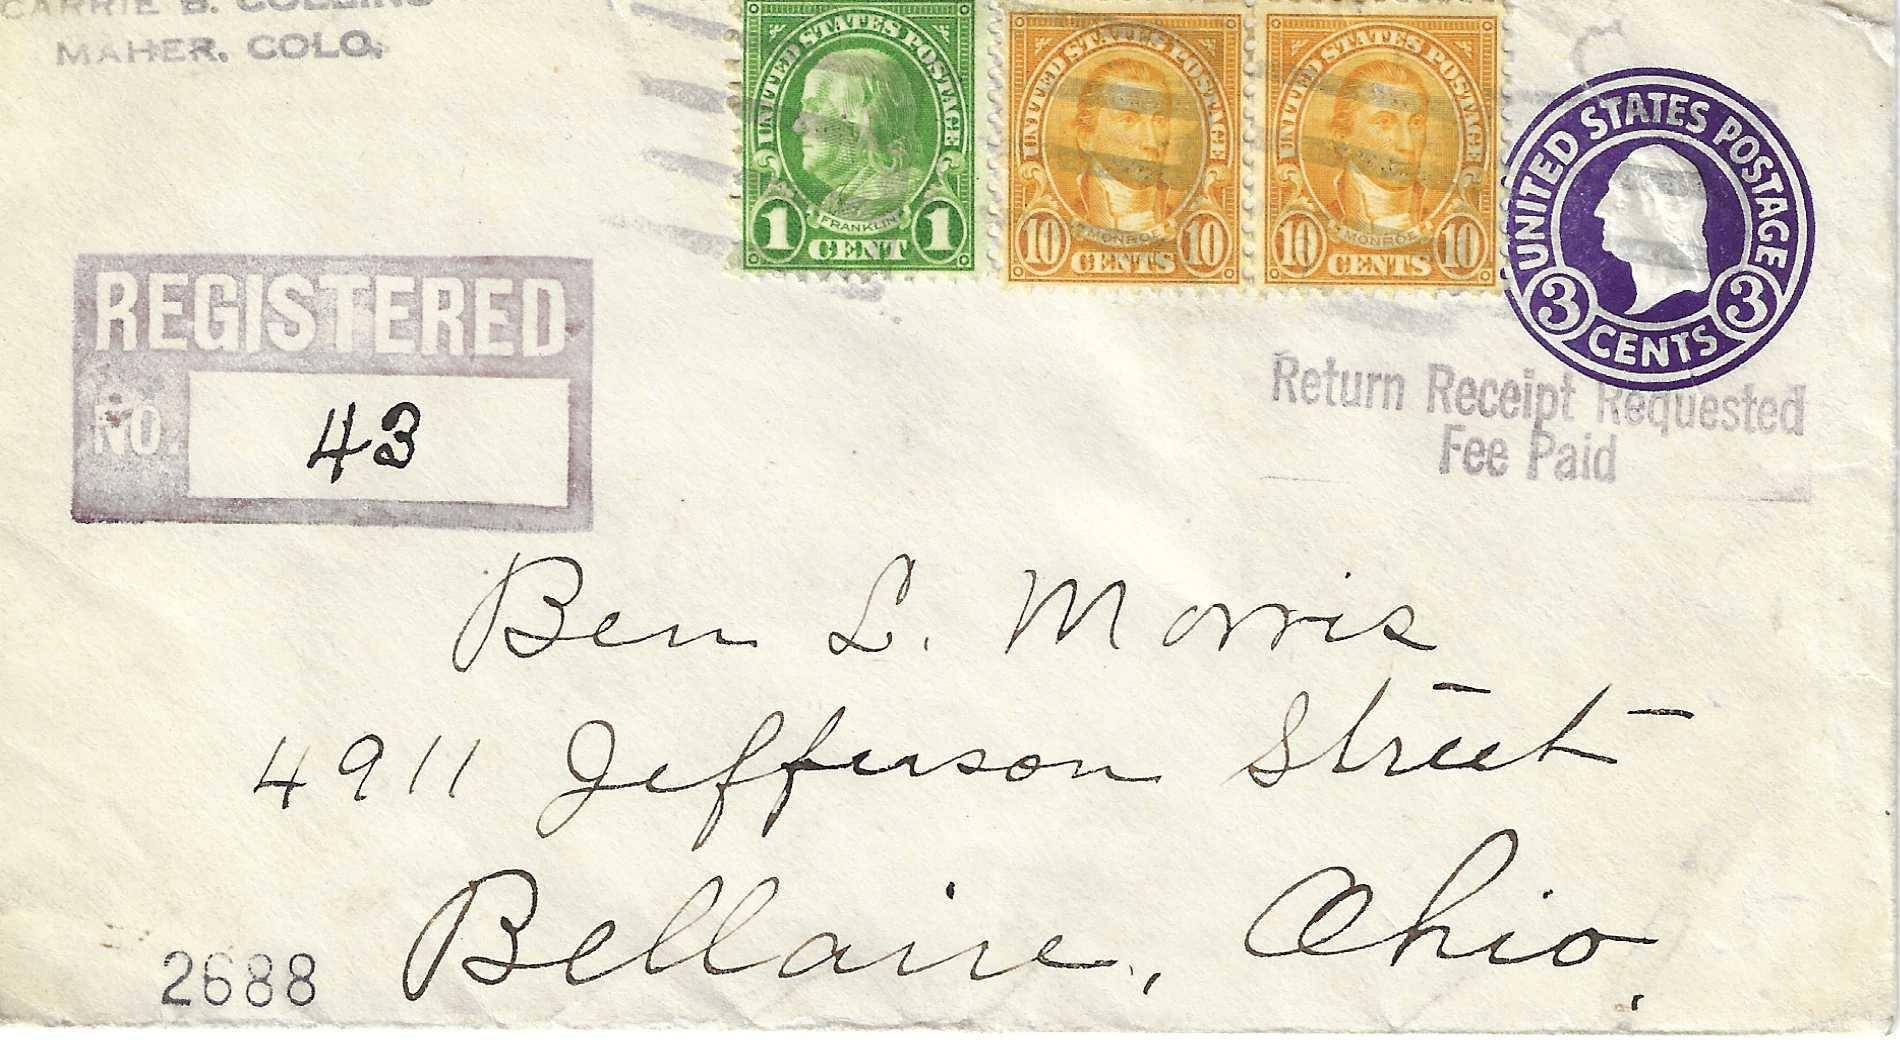 CARRIE B. COLLINS
MAHER, COLO.
UNITED STATES POSTAGE
FRANKLIN
1 CENT 1
UNITED STATES POSTAGE
MONROE
10 CENTS 10
UNITED STATES POSTAGE
MONROE
10 CENTS 10
UNITED STATES POSTAGE
3 CENTS 3
REGISTERED
NO. 43
Return Receipt Requested
Fee Paid
Ben L. Morris
4911 Jefferson Street
Bellaire, Ohio.
2688